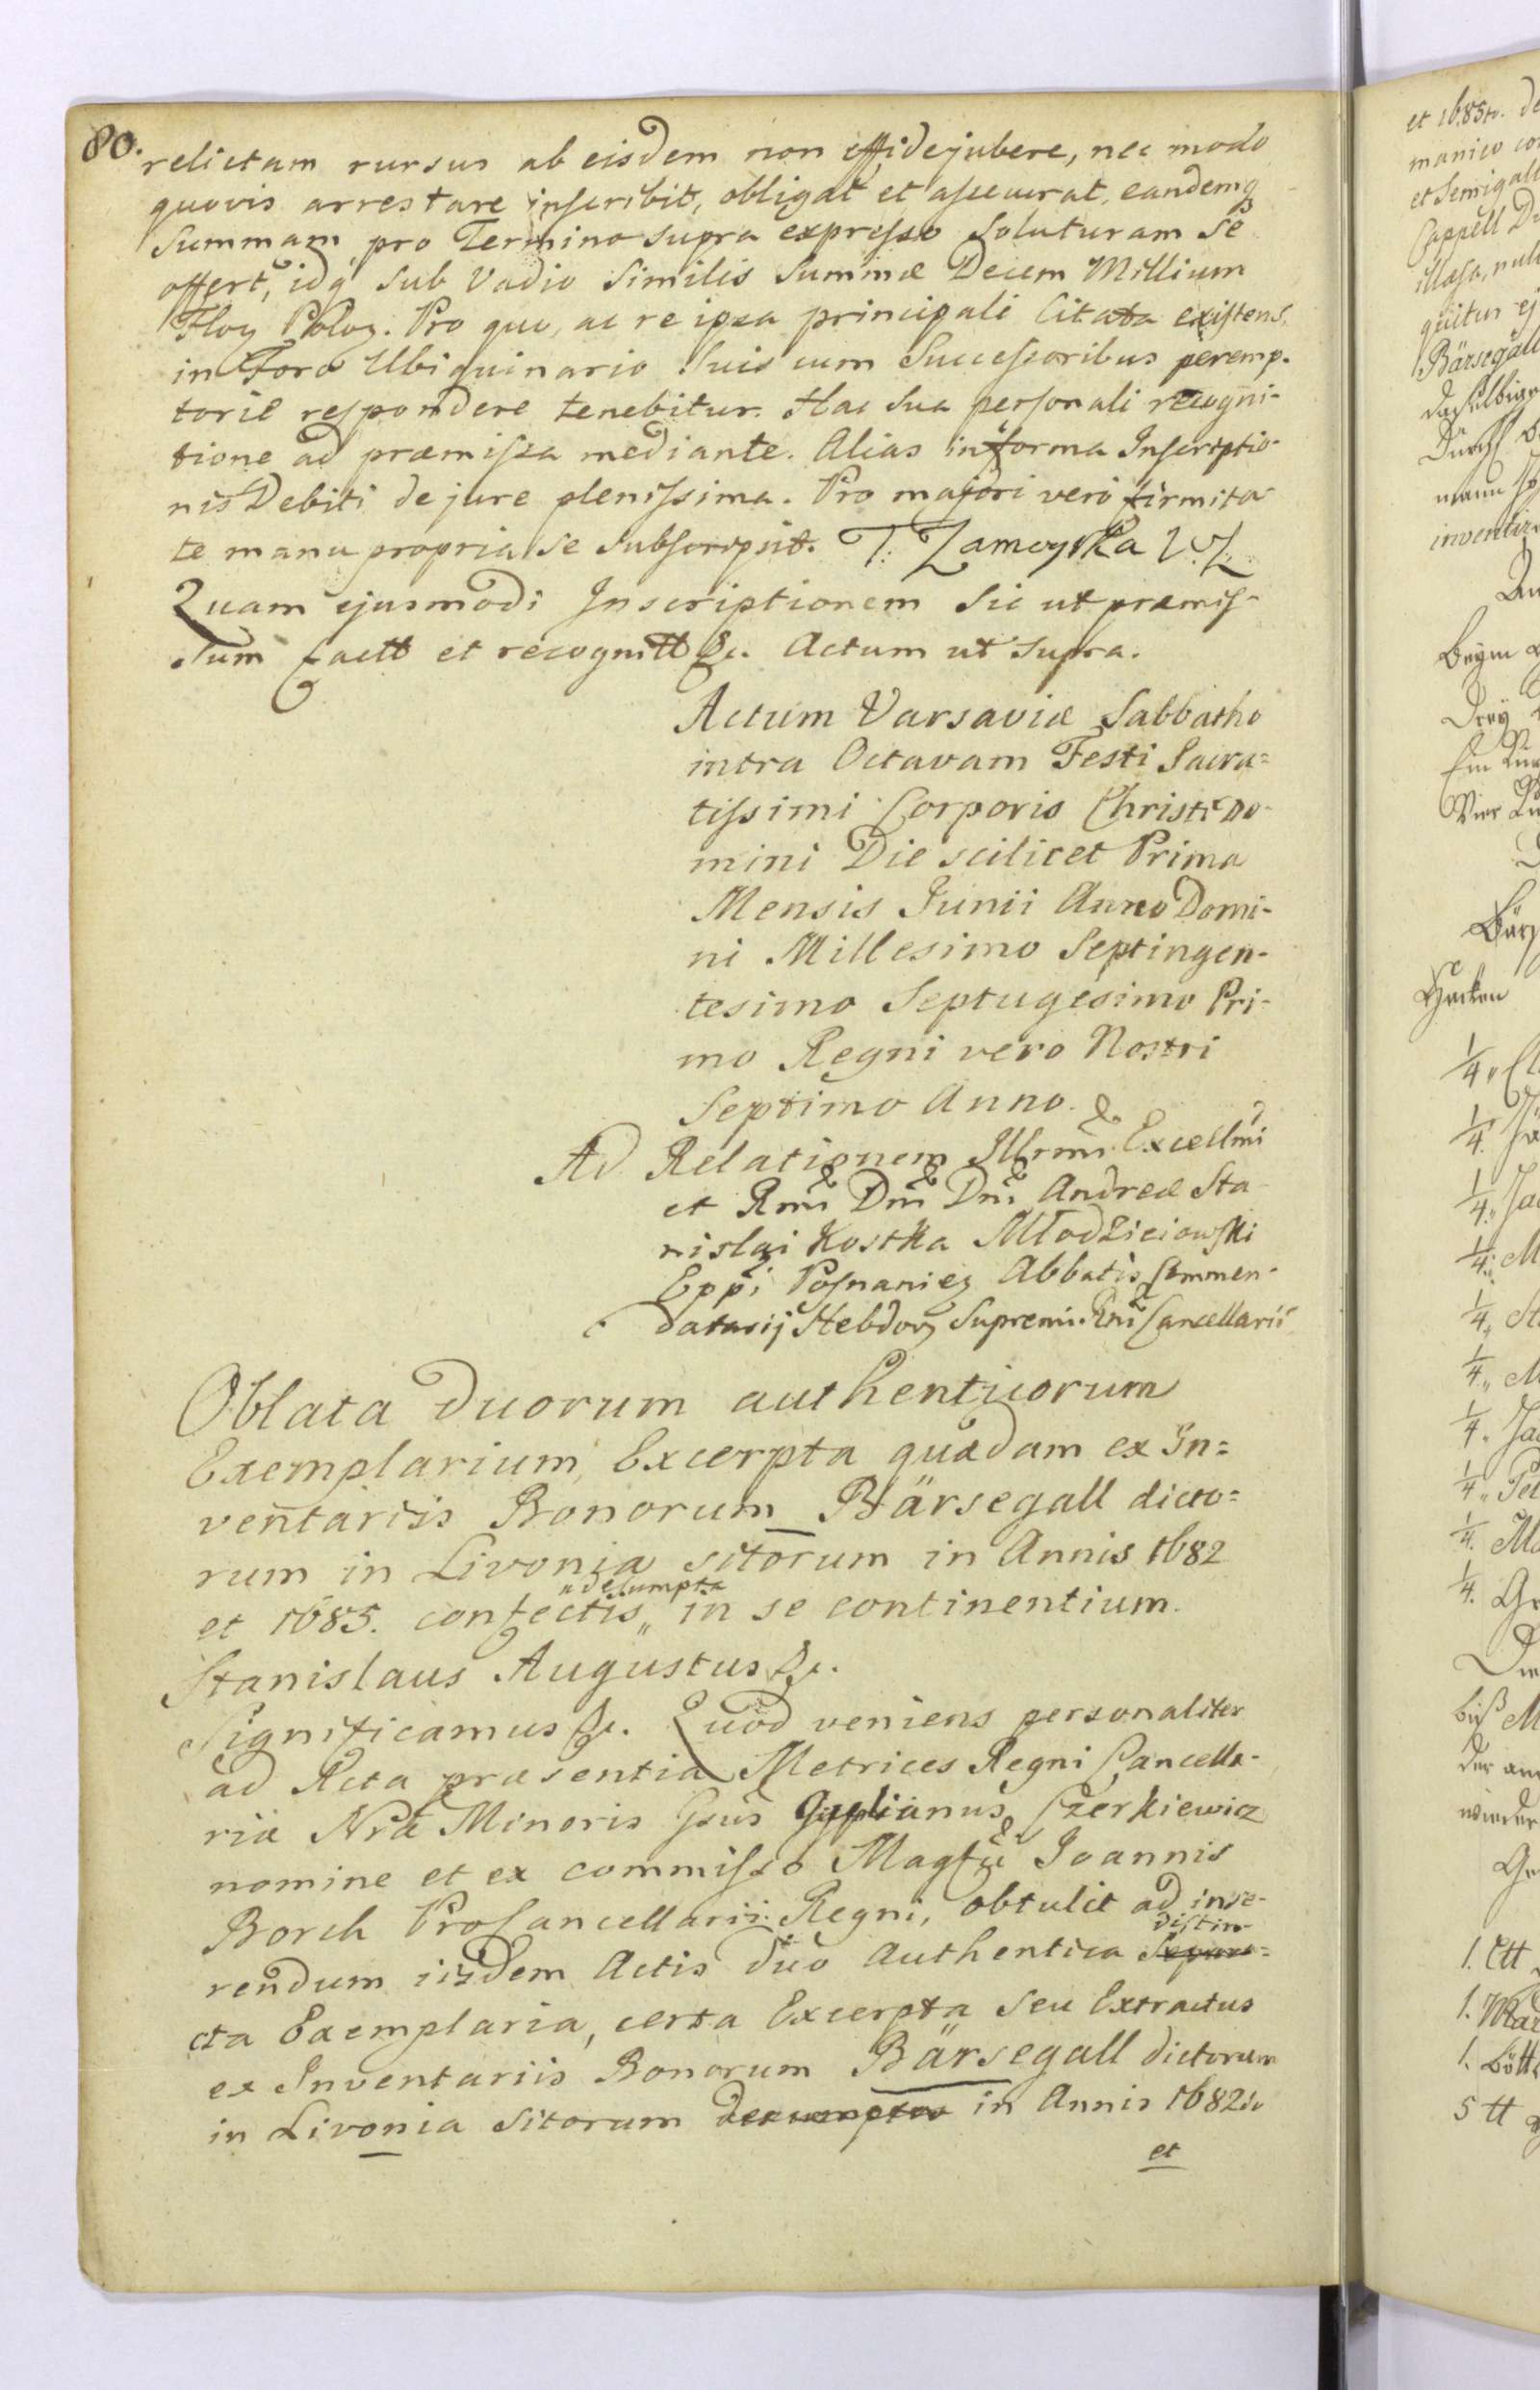 80.
relictam rursus ab eisdem non effidejubere, nec modo
quovis arrestare inscribit, obligat et assecurat, eandemq
Summam pro Termino supra expresso Soluturam Se
offert, idq sub Vadio Similis Summæ Decem Millium
Flor Polor. Pro quo, ac re ipsa principali Citata existens
in Foro Ubiquinario Suis cum Successoribus peremp-
torie respondere tenebitur. Hac Sua personali recogni-
tione ad præmissa mediante. Alias in forma Inscriptio-
nis Debiti de jure plenissima. Pro majori vero firmita-
te manu propria Se Subscripsit. T. Zamoyska
Quam ejusmodi Inscriptionem Sic ut præmis-
sum factt et recognitt &c. Actum ut Supra.
Actum Varsaviæ Sabbatho
intra Octavam Festi Sacra=
tissimi Corporis Christi Do-
mini Die scilicet Prima
Mensis Junii Anno Domi-
ni Millesimo Septingen-
tesimo Septugesimo Pri-
mo Regni vero Nostri
Septimo Anno.
Ad Relationem Illrmi Excellmi
et Rmi Dni Dni Andreæ Sta-
nislai Kostka Młodziciowski
Eppi Posnanien Abbatis Commen-
datarij Hebdov Supremi Rni Cancellarii
Oblata duorum authenticorum
Exemplarium, Excerpta quædam ex In=
ventariis Bonorum Bärsegall dicto=
rum in Livonia sitorum in Annis 1682
et 1685. confectis „ in se continentium.
„ desumpta
Stanislaus Augustus &c.
Significamus &c. Quod veniens personaliter
ad Acta præsentia Metrices Regni Cancella-
riæ Nræ Minoris Gsus Cyplianus Czerkiewicz
nomine et ex commisso Magfci Joannis
Borch ProCancellarii Regni, obtulit ad inse-
rendum iisdem Actis duo Authentica Separa= distin-
cta Exemplaria, certa Excerpta seu Extractus
ex Inventariis Bonorum Bärsegall dictorum
in Livonia Sitorum in Annis 1682do
et
et 1685to. de
manico
et Semigall
Cappell
illæsa, nul
quitur ej
Bärsegall
inventir
1/4 „
1/4.
1/4 „ Ja
1/4 „ M
1/4 „ St
1/4 „ M
1/4 „ Ja
1/4 „ Pet
1/4. Ma
1/4. Ge